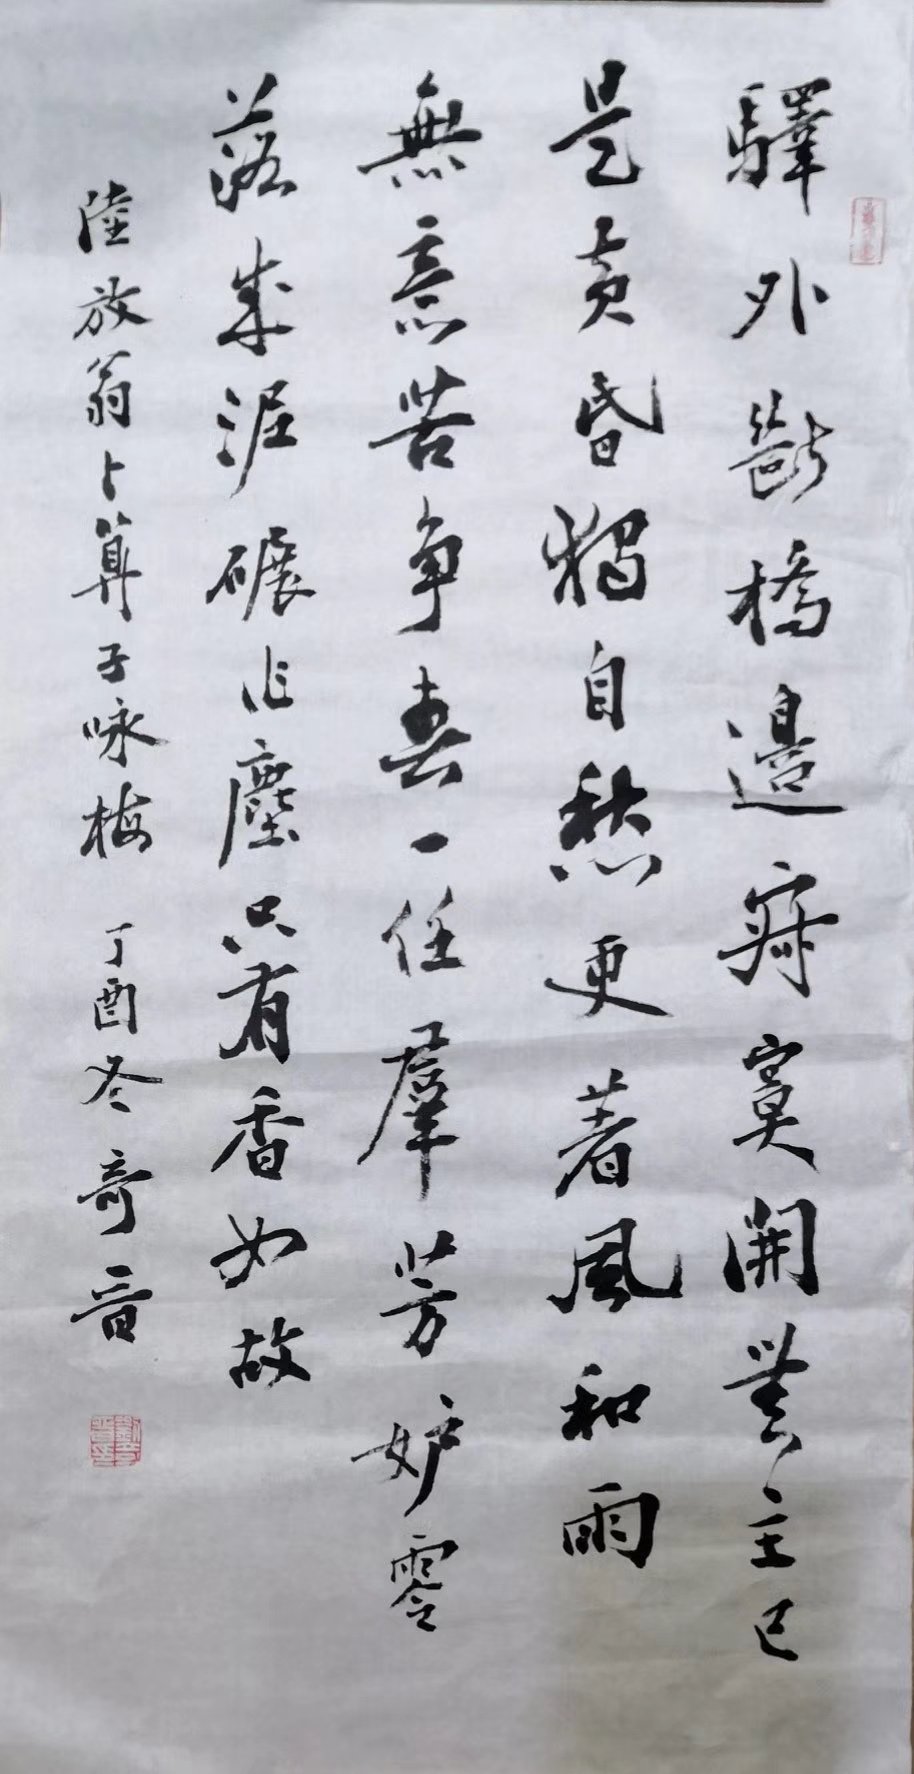 驛外斷橋邊寂寞開無主已
是黃昏獨自愁更著風和雨
無意苦争春一任羣芳妒零
落成泥碾作塵只有香如故
陸放翁卜算子咏梅 丁酉冬奇音